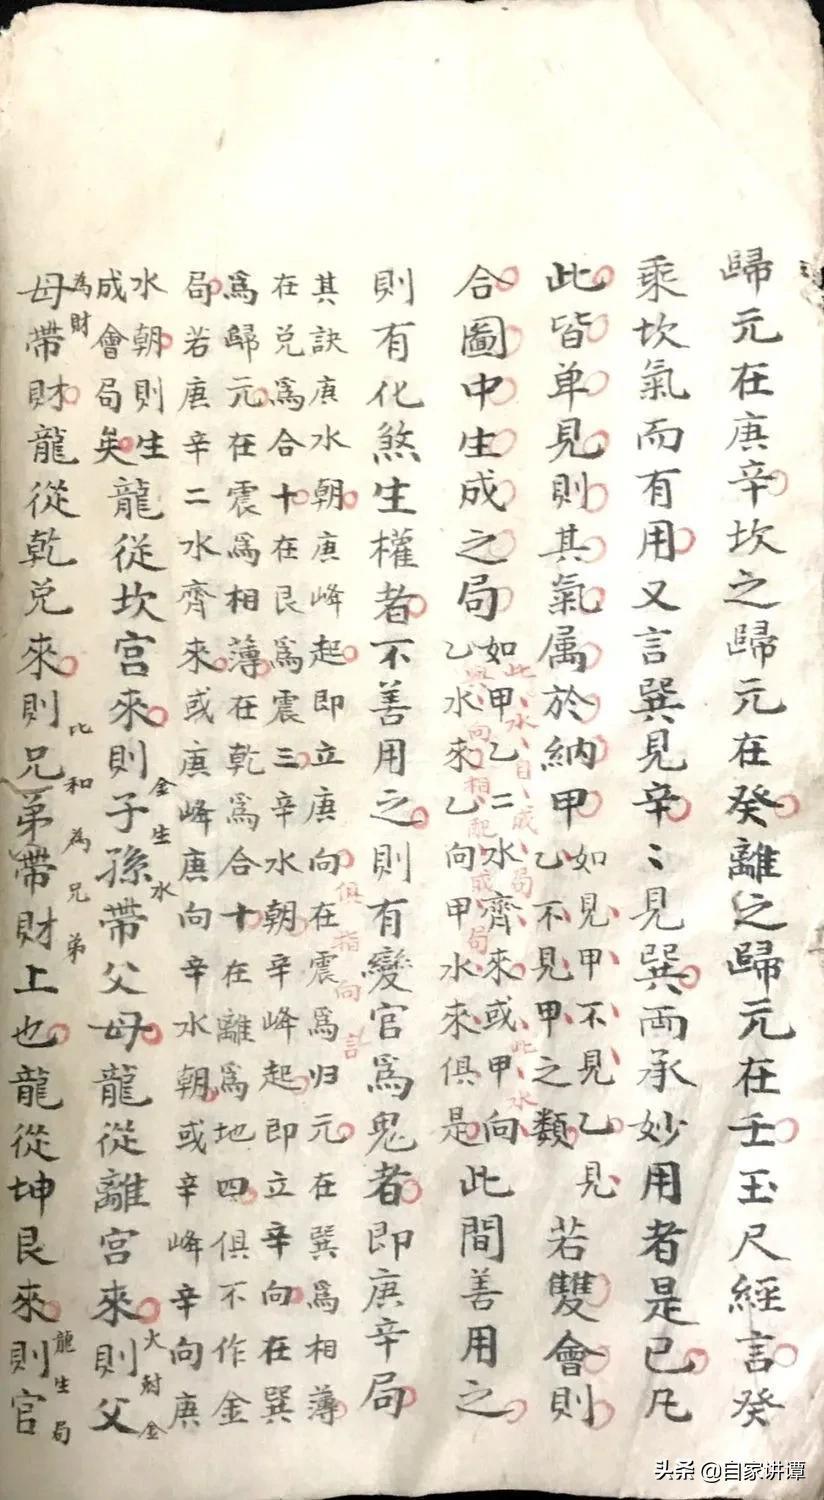 歸元在庚辛坎之歸元在癸離之歸元在壬玉尺經言癸
乘坎氣而有用又言巽見辛〻見巽而承妙用者是已凡
此皆单見則其氣属於納甲
如見甲不見乙見
乙不見甲之類
若雙會則
合圖中生成之局
如甲乙二水齊來或甲向
乙水來乙向甲水來俱是
此水自成局
此水
與向相配成局
此間善用之
則有化煞生權者不善用之則有變官爲鬼者即庚辛局
其訣庚水朝庚峰起即立庚向在震爲归元在巽爲相薄
俱指向言
在兑爲合十在艮爲震三辛水朝辛峰起即立辛向在巽
爲歸元在震爲相薄在乾爲合十在離爲地四俱不作金
局若庚辛二水齊來或庚峰庚向辛水朝或辛峰辛向庚
水朝則生
成會局矣
龍從坎宫來則子孫帶父母龍從離宫來則父
金生水
金
為財
母帶財龍從乾兑來則兄弟帶財上也龍從坤艮來則官
比和為兄弟
龍生局
头条 @自家讲谭